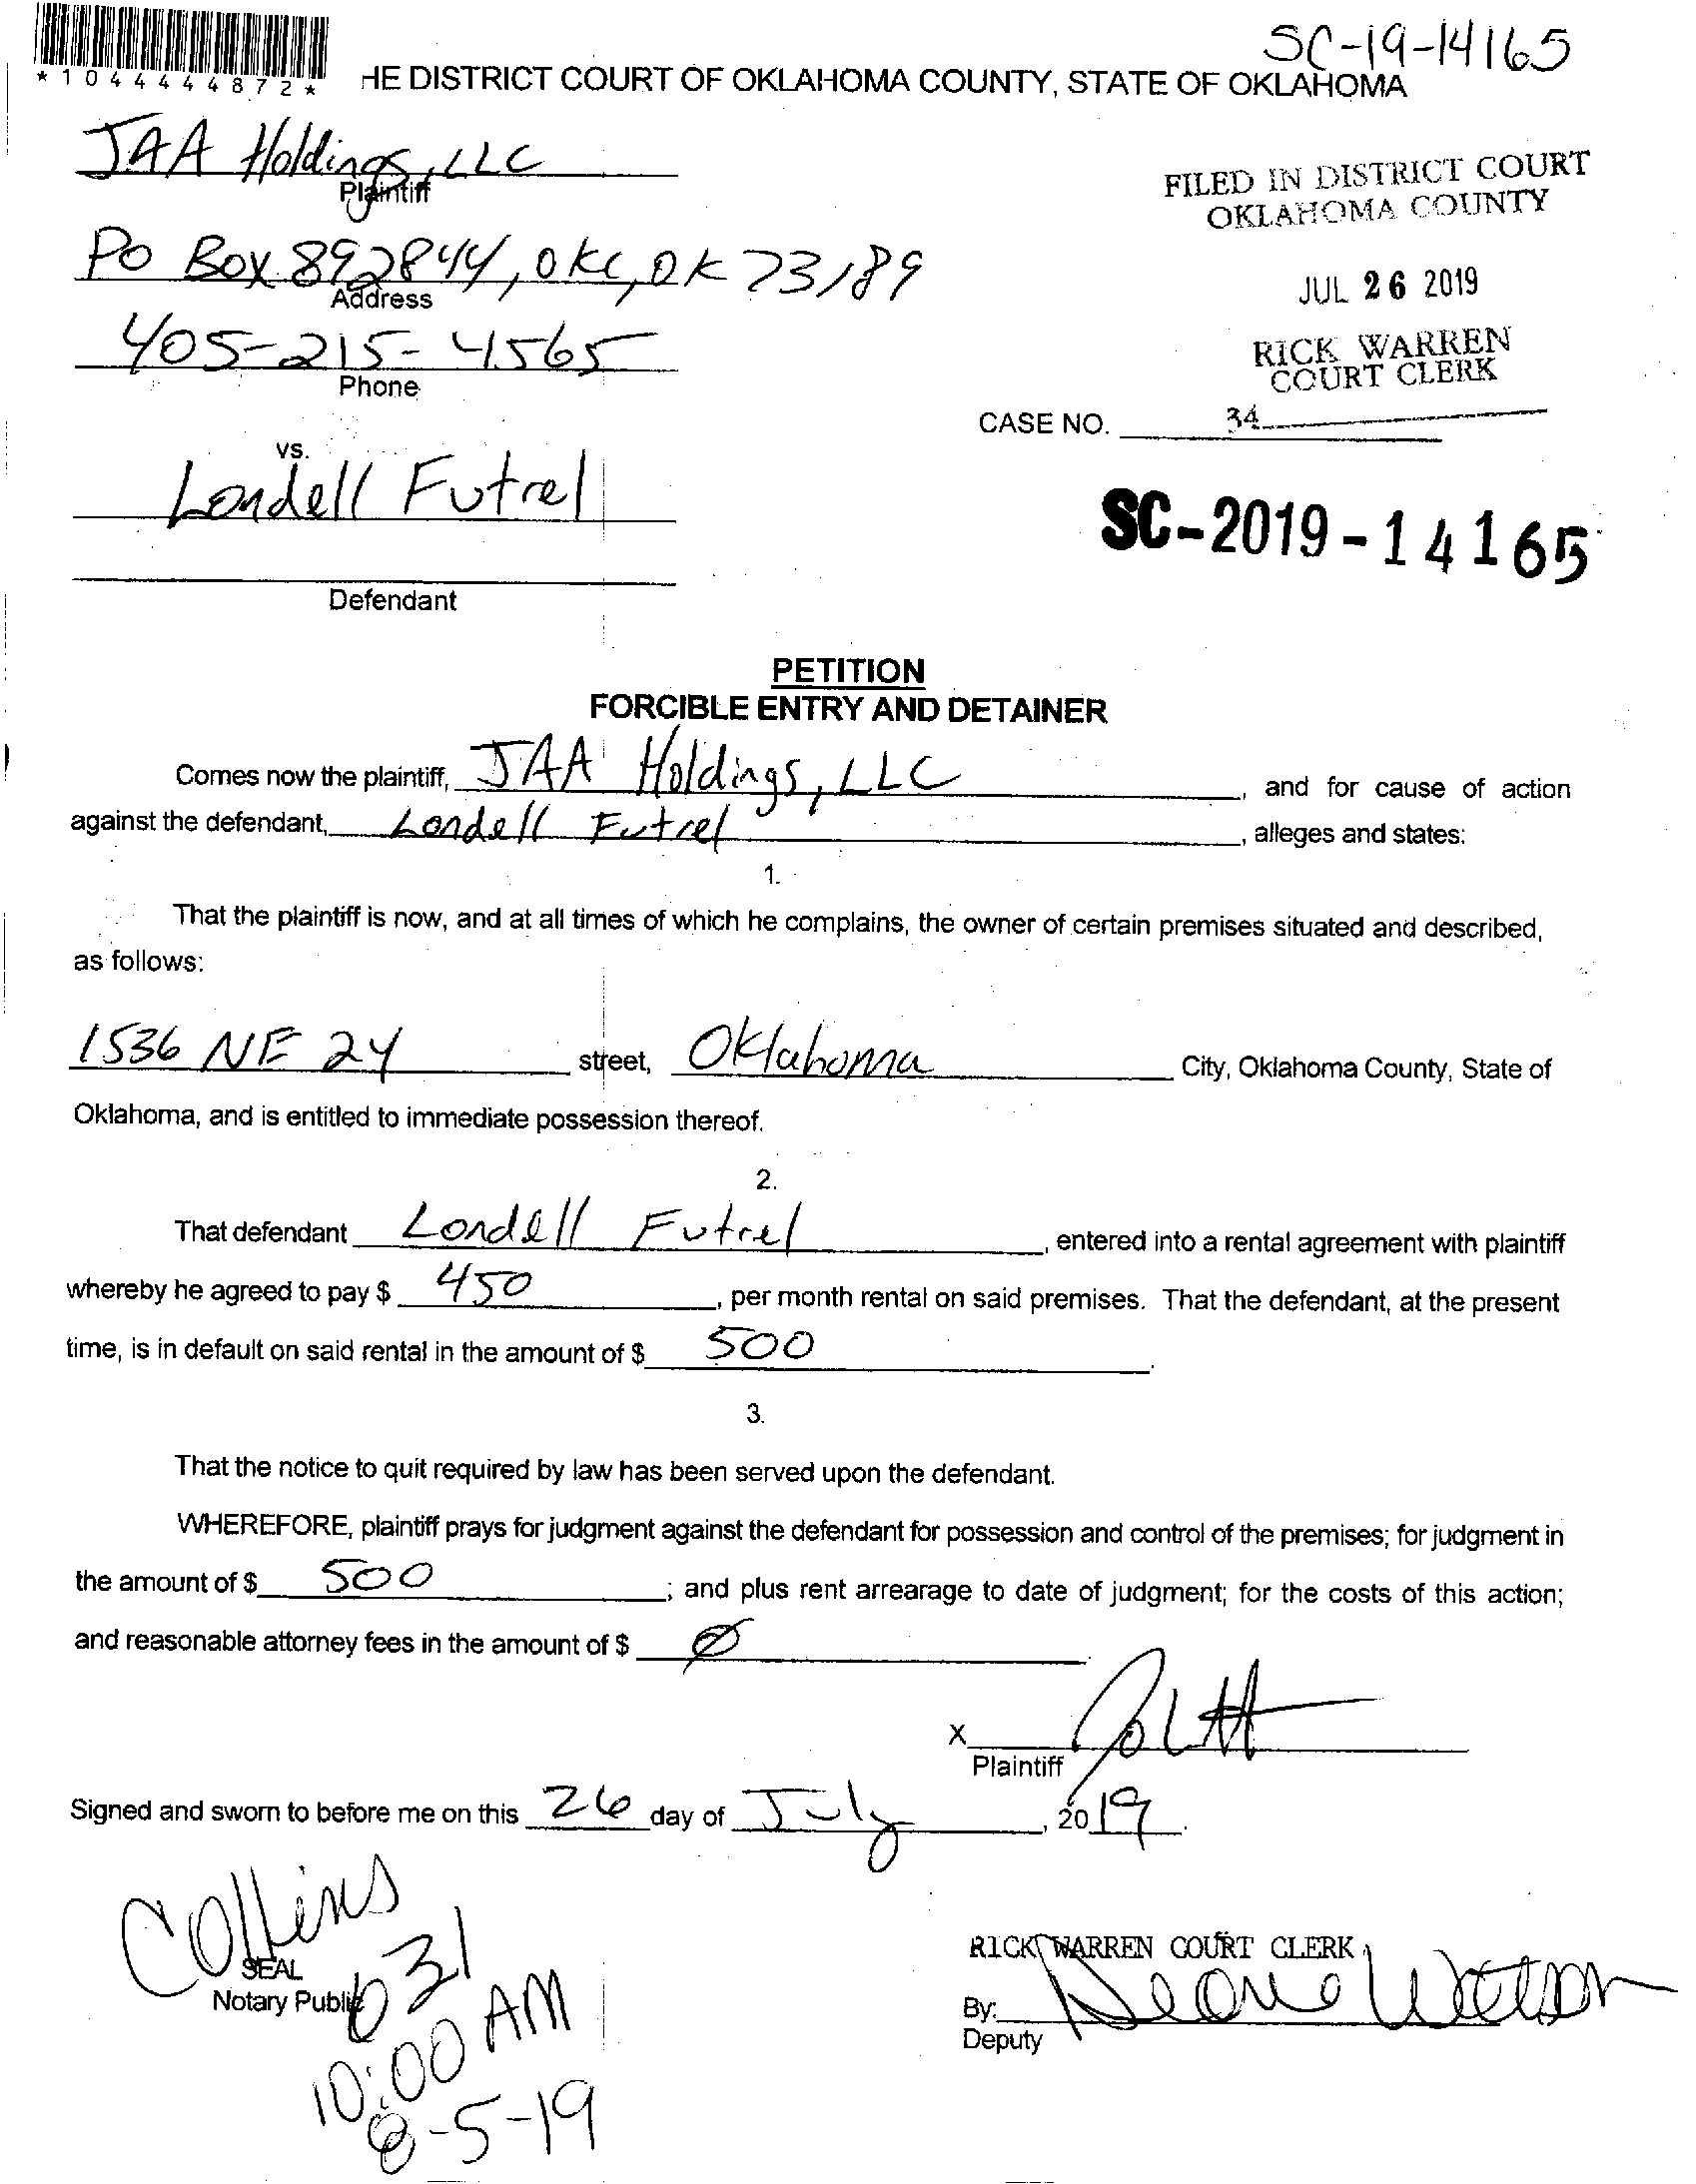 SC-19-14165
*1044444872*
HE DISTRICT COURT OF OKLAHOMA COUNTY, STATE OF OKLAHOMA
JAA Holdings, LLC
Plaintiff
FILED IN DISTRICT COURT
OKLAHOMA COUNTY
PO Box 892844, OKC, OK 73189
Address
JUL 26 2019
405-215-4565
Phone
RICK WARREN
COURT CLERK
CASE NO. 34
vs.
Londell Futrel
SC-2019-14165
Defendant
PETITION
FORCIBLE ENTRY AND DETAINER
Comes now the plaintiff, JAA Holdings, LLC, and for cause of action
against the defendant, Londell Futrel, alleges and states:
1.
That the plaintiff is now, and at all times of which he complains, the owner of certain premises situated and described,
as follows:
1536 NE 24 street, Oklahoma City, Oklahoma County, State of
Oklahoma, and is entitled to immediate possession thereof.
2.
That defendant Londell Futrel, entered into a rental agreement with plaintiff
whereby he agreed to pay $ 450, per month rental on said premises. That the defendant, at the present
time, is in default on said rental in the amount of $ 500.
3.
That the notice to quit required by law has been served upon the defendant.
WHEREFORE, plaintiff prays for judgment against the defendant for possession and control of the premises; for judgment in
the amount of $ 500; and plus rent arrearage to date of judgment; for the costs of this action;
and reasonable attorney fees in the amount of $ Ø
X
Plaintiff
Signed and sworn to before me on this 26 day of July, 2019
Collins
SEAL
Notary Public
631
10:00 AM
8-5-19
RICK WARREN COURT CLERK
By:
Deputy